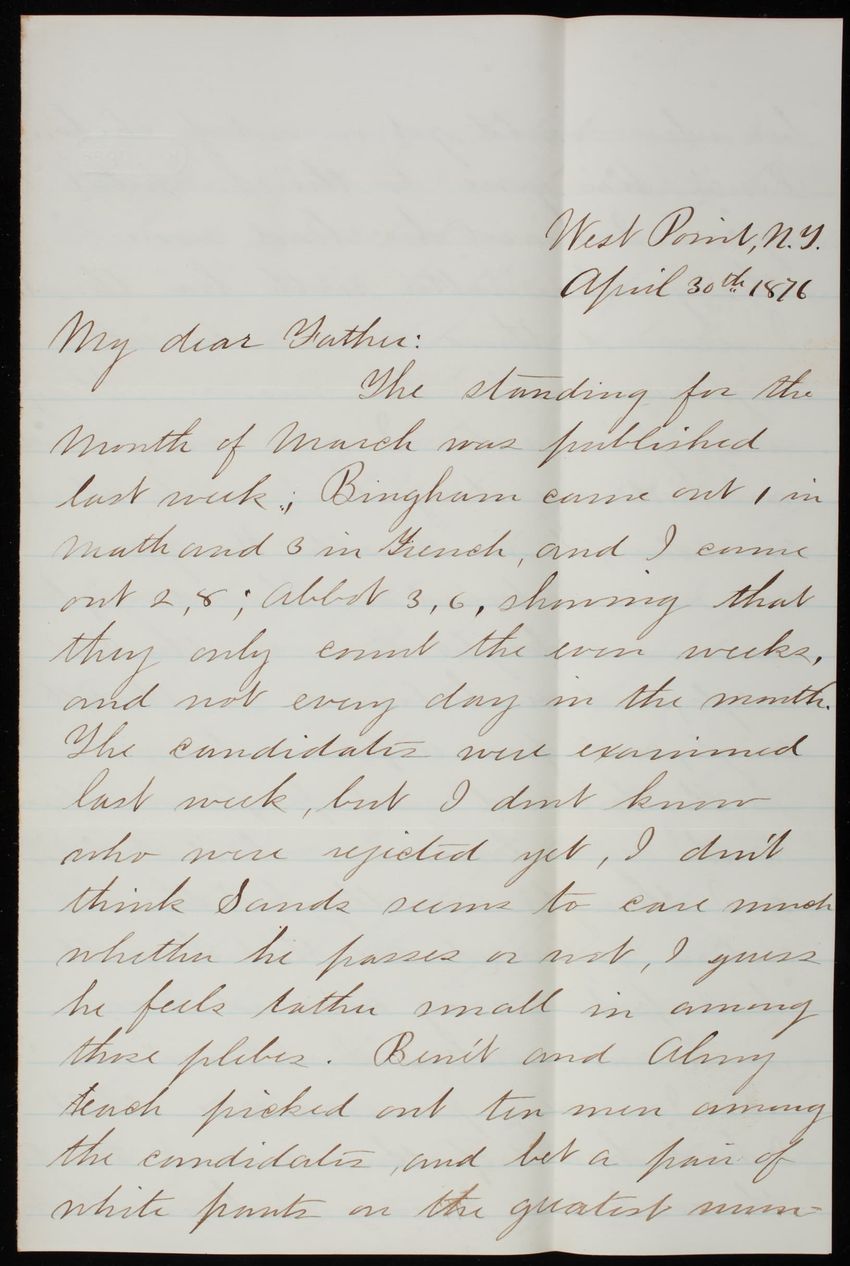 West Point, N.Y.
April 30th 1876
My dear Father:
The standing for the
Month of March was published
last week; Bingham came out 1 in
Math and 3 in French, and I came
out 2, 8; Abbot 3, 6, showing that
they only count the even weeks,
and not every day in the month.
The candidates were examined
last week, but I dont know
who were rejected yet, I don't
think Sands seems to care much
whether he passes or not, I guess
he feels rather small in among
those plebes. Benét and Almy
each picked out ten men among
the candidates, and bet a pair of
white pants on the greatest num-